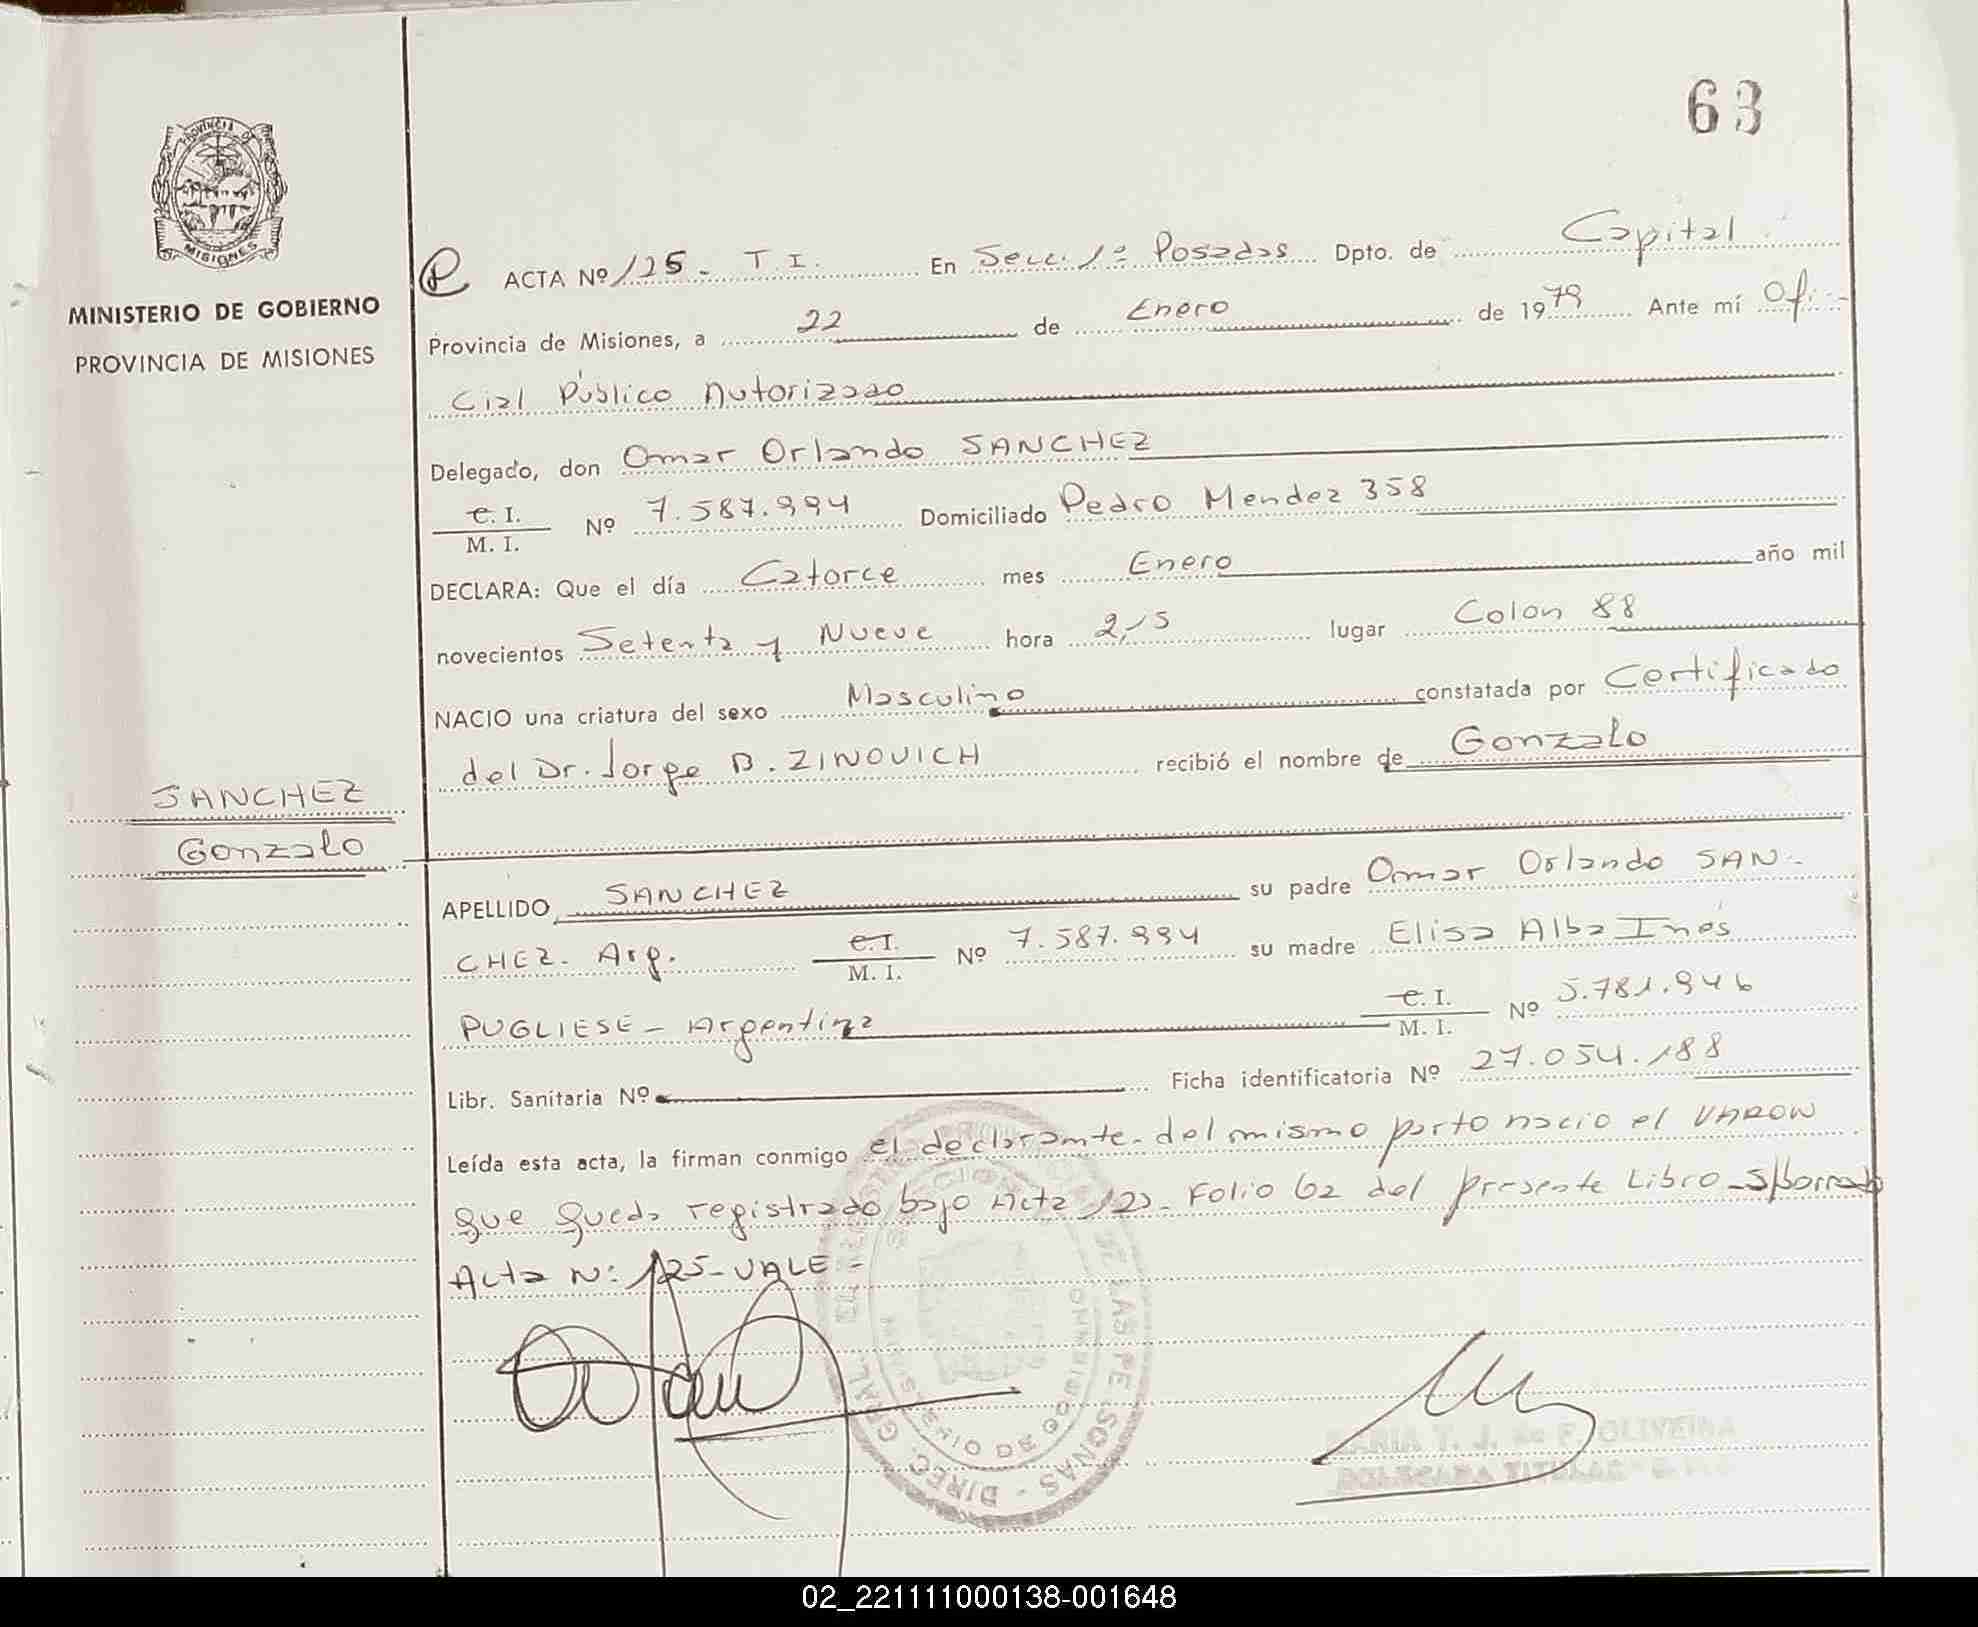 63
PROVINCIA DE
MISIONES
MINISTERIO DE GOBIERNO
PROVINCIA DE MISIONES
ACTA Nº 125 - T.I. En Secc. 1ª Posadas Dpto. de Capital
Provincia de Misiones, a 22 de Enero de 1979 Ante mí Ofi-
cial Público Autorizado
Delegado, don Omar Orlando SANCHEZ
C. I. / M. I. Nº 7.587.994 Domiciliado Pedro Mendez 358
DECLARA: Que el día Catorce mes Enero año mil
novecientos Setenta y Nueve hora 2,15 lugar Colon 88
NACIO una criatura del sexo Masculino constatada por Certificado
del Dr. Jorge B. ZINOVICH recibió el nombre de Gonzalo
SANCHEZ
Gonzalo
APELLIDO SANCHEZ su padre Omar Orlando SAN-
CHEZ- Arg. C.I. / M. I. Nº 7.587.994 su madre Elisa Alba Inés
PUGLIESE - Argentina C. I. / M. I. Nº 5.781.946
Libr. Sanitaria Nº Ficha identificatoria Nº 27.054.188
Leída esta acta, la firman conmigo el declarante. del mismo parto nacio el VARON
que queda registrado bajo Acta Folio 62 del presente Libro - S/borrado
Acta N: 125 - VALE -
DE LAS PERSONAS - DIREC. GRAL.
OLIVEIRA
TITULAR
02_221111000138-001648